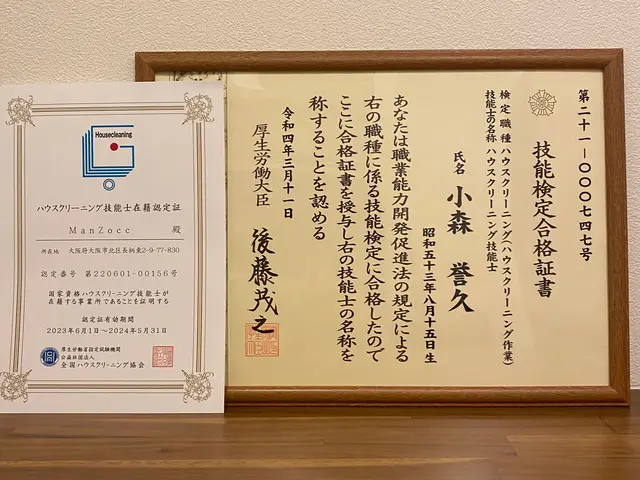 Housecleaning
ハウスクリーニング技能士在籍認定証
ManZocc 殿
所在地 大阪府大阪市北区長柄東2-9-77-830
認定番号 第220601-00156号
国家資格ハウスクリーニング技能士が
在籍する事業所であることを証明する
認定証有効期間
2023年6月1日〜2024年5月31日
厚生労働省指定試験機関
公益社団法人
全国ハウスクリーニング協会
第二十一-〇〇〇七四七号
技能検定合格証書
検定職種 ハウスクリーニング(ハウスクリーニング作業)
技能士の名称 ハウスクリーニング技能士
氏名 小森 誉久
昭和五十三年八月十五日生
あなたは職業能力開発促進法の規定による
右の職種に係る技能検定に合格したので
ここに合格証書を授与し右の技能士の名称を
称することを認める
令和四年三月十一日
厚生労働大臣 後藤茂之